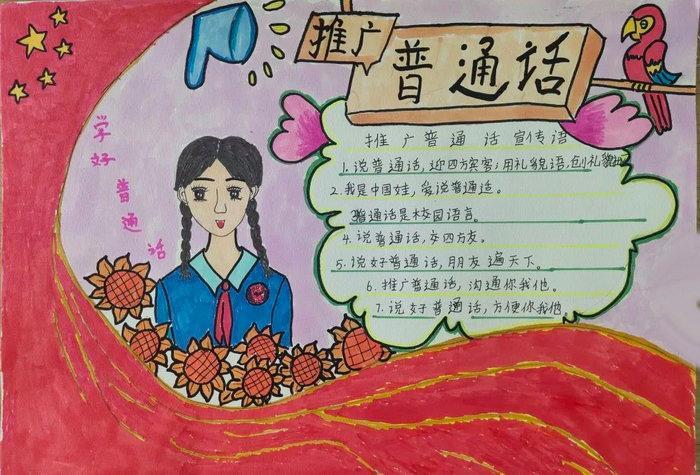 推广
普通话
学好普通话
推广普通话宣传语
1.说普通话,迎四方宾客;用礼貌语,创礼貌
2.我是中国娃,爱说普通话。
3.普通话是校园语言。
4.说普通话,交四方友。
5.说好普通话,朋友遍天下。
6.推广普通话,沟通你我他。
7.说好普通话,方便你我他